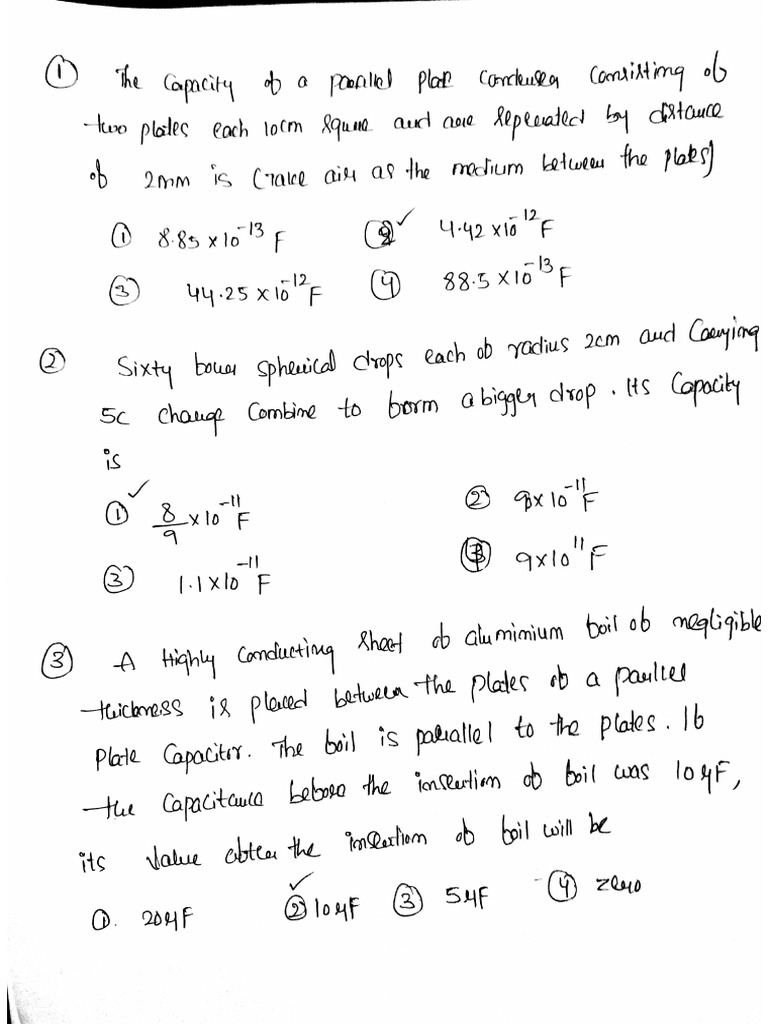 ① The Capacity of a parallel plate condenser Consisting of
two plates each 10cm square and are seperated by distance
of 2mm is (Take air as the medium between the plates)
① 8.85 × 10⁻¹³ F ② ✓ 4.42 × 10⁻¹² F
③ 44.25 × 10⁻¹² F ④ 88.5 × 10⁻¹³ F
② Sixty four spherical drops each of radius 2cm and Carrying
5c charge Combine to form a bigger drop. Its Capacity
is
① ✓ 8/9 × 10⁻¹¹ F ② 90 × 10⁻¹¹ F
③ 1.1 × 10⁻¹¹ F ④ 9 × 10¹¹ F
③ A Highly Conducting sheet of aluminium foil of negligible
thickness is placed between the plates of a parallel
plate Capacitor. The foil is parallel to the plates. If
the Capacitance before the insertion of foil was 10 μF,
its value after the insertion of foil will be
①. 20 μF ② ✓ 10 μF ③ 5 μF ④ zero